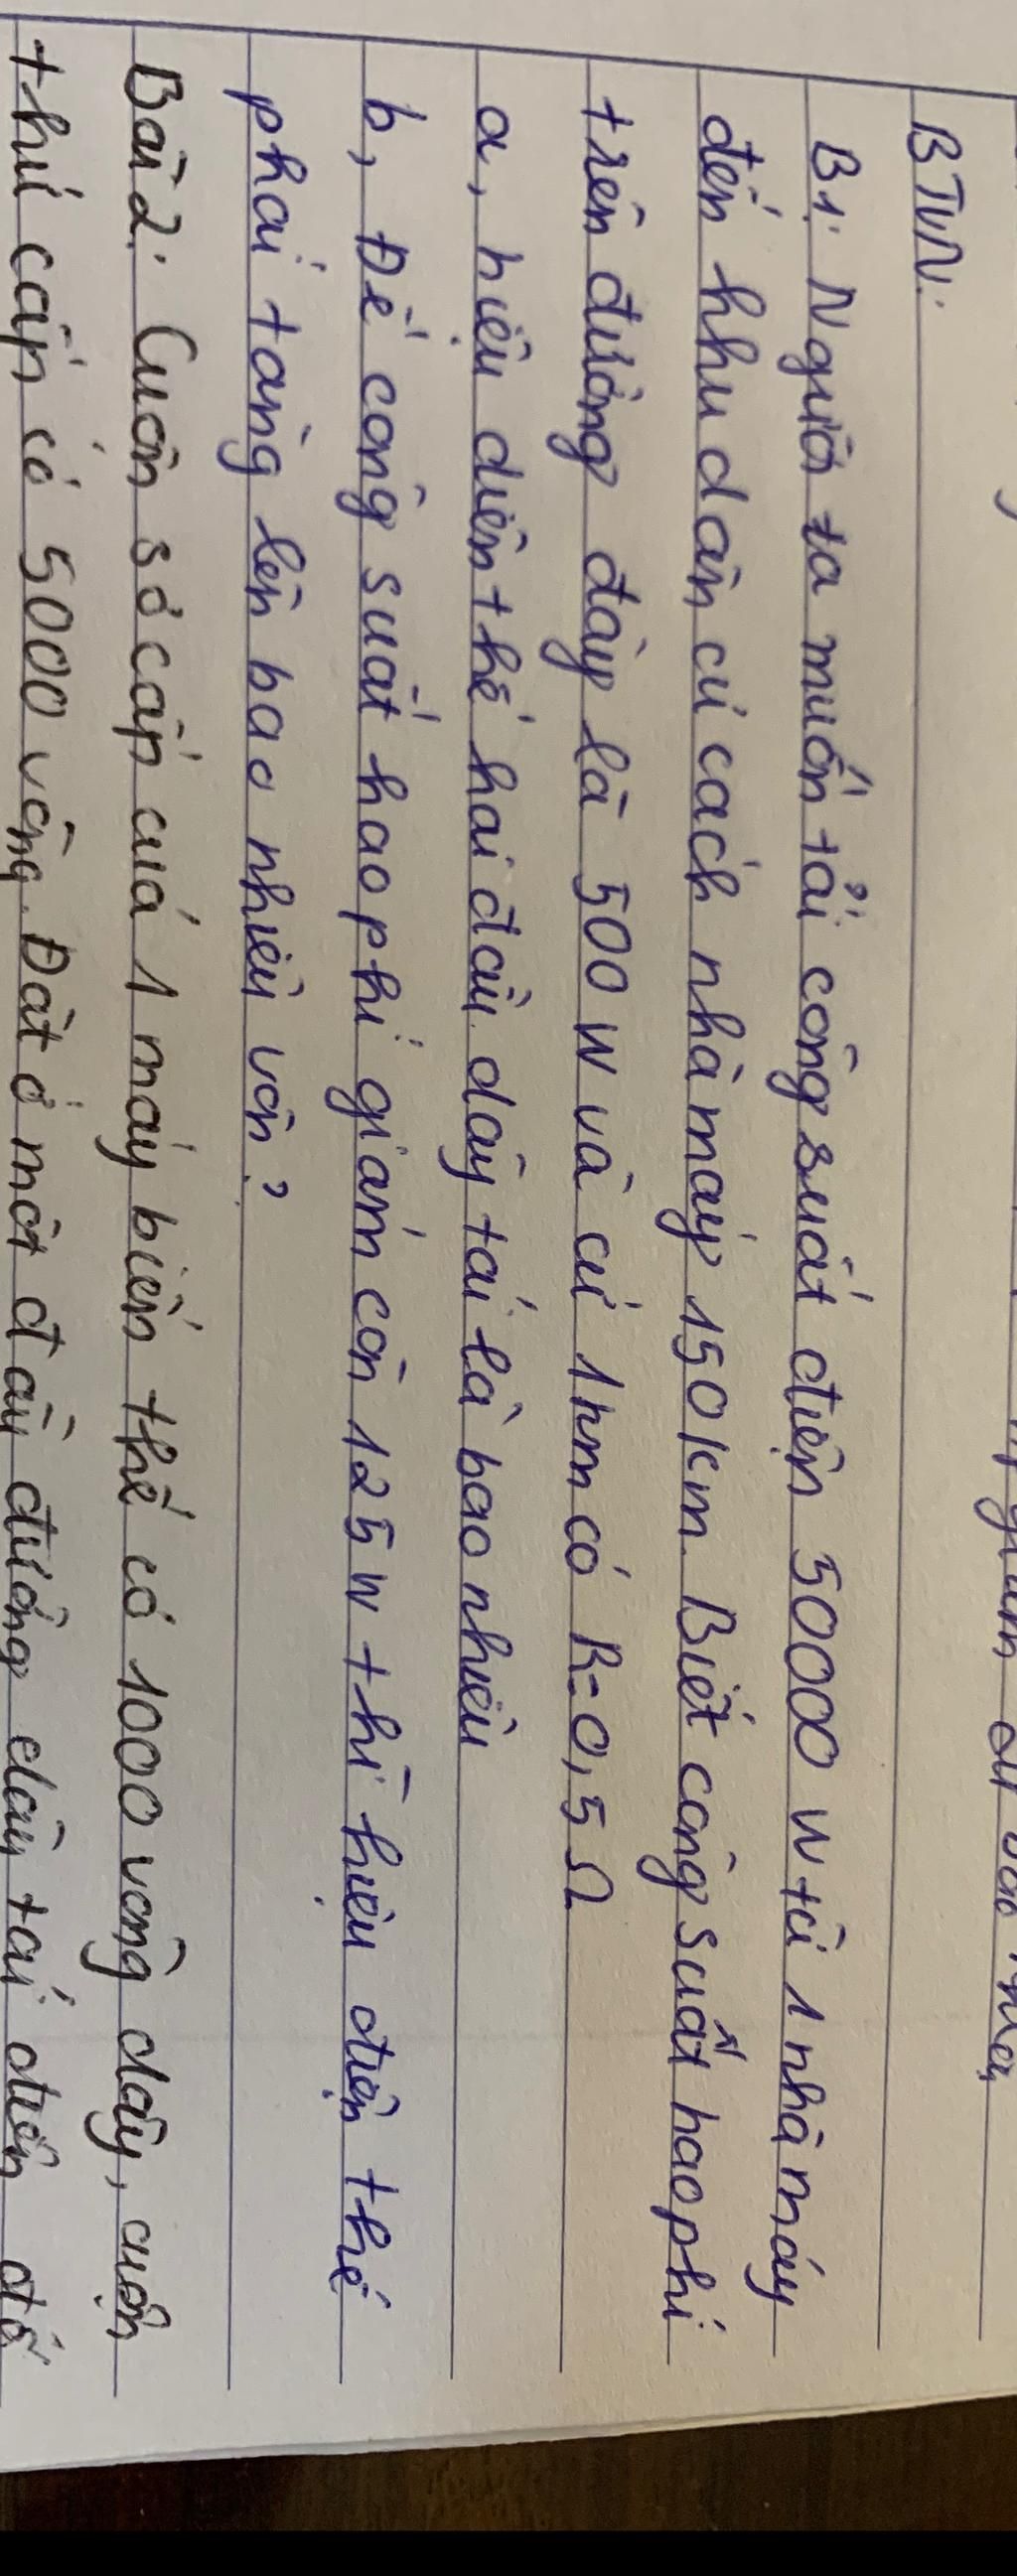 BTVN:
B1: Người ta muốn tải công suất điện 50000 W từ 1 nhà máy
đến khu dân cư cách nhà máy 150km. Biết công suất hao phí
trên đường dây là 500 W và cứ 1km có R=0,5Ω
a, hiệu điện thế hai đầu dây tải là bao nhiêu
b, Để công suất hao phí giảm còn 125W thì hiệu điện thế
phải tăng lên bao nhiêu vôn?
Bài 2: Cuộn sơ cấp của 1 máy biến thế có 1000 vòng dây, cuộn
thứ cấp có 5000 vòng. Đặt ở một đầu đường dây tải điện để